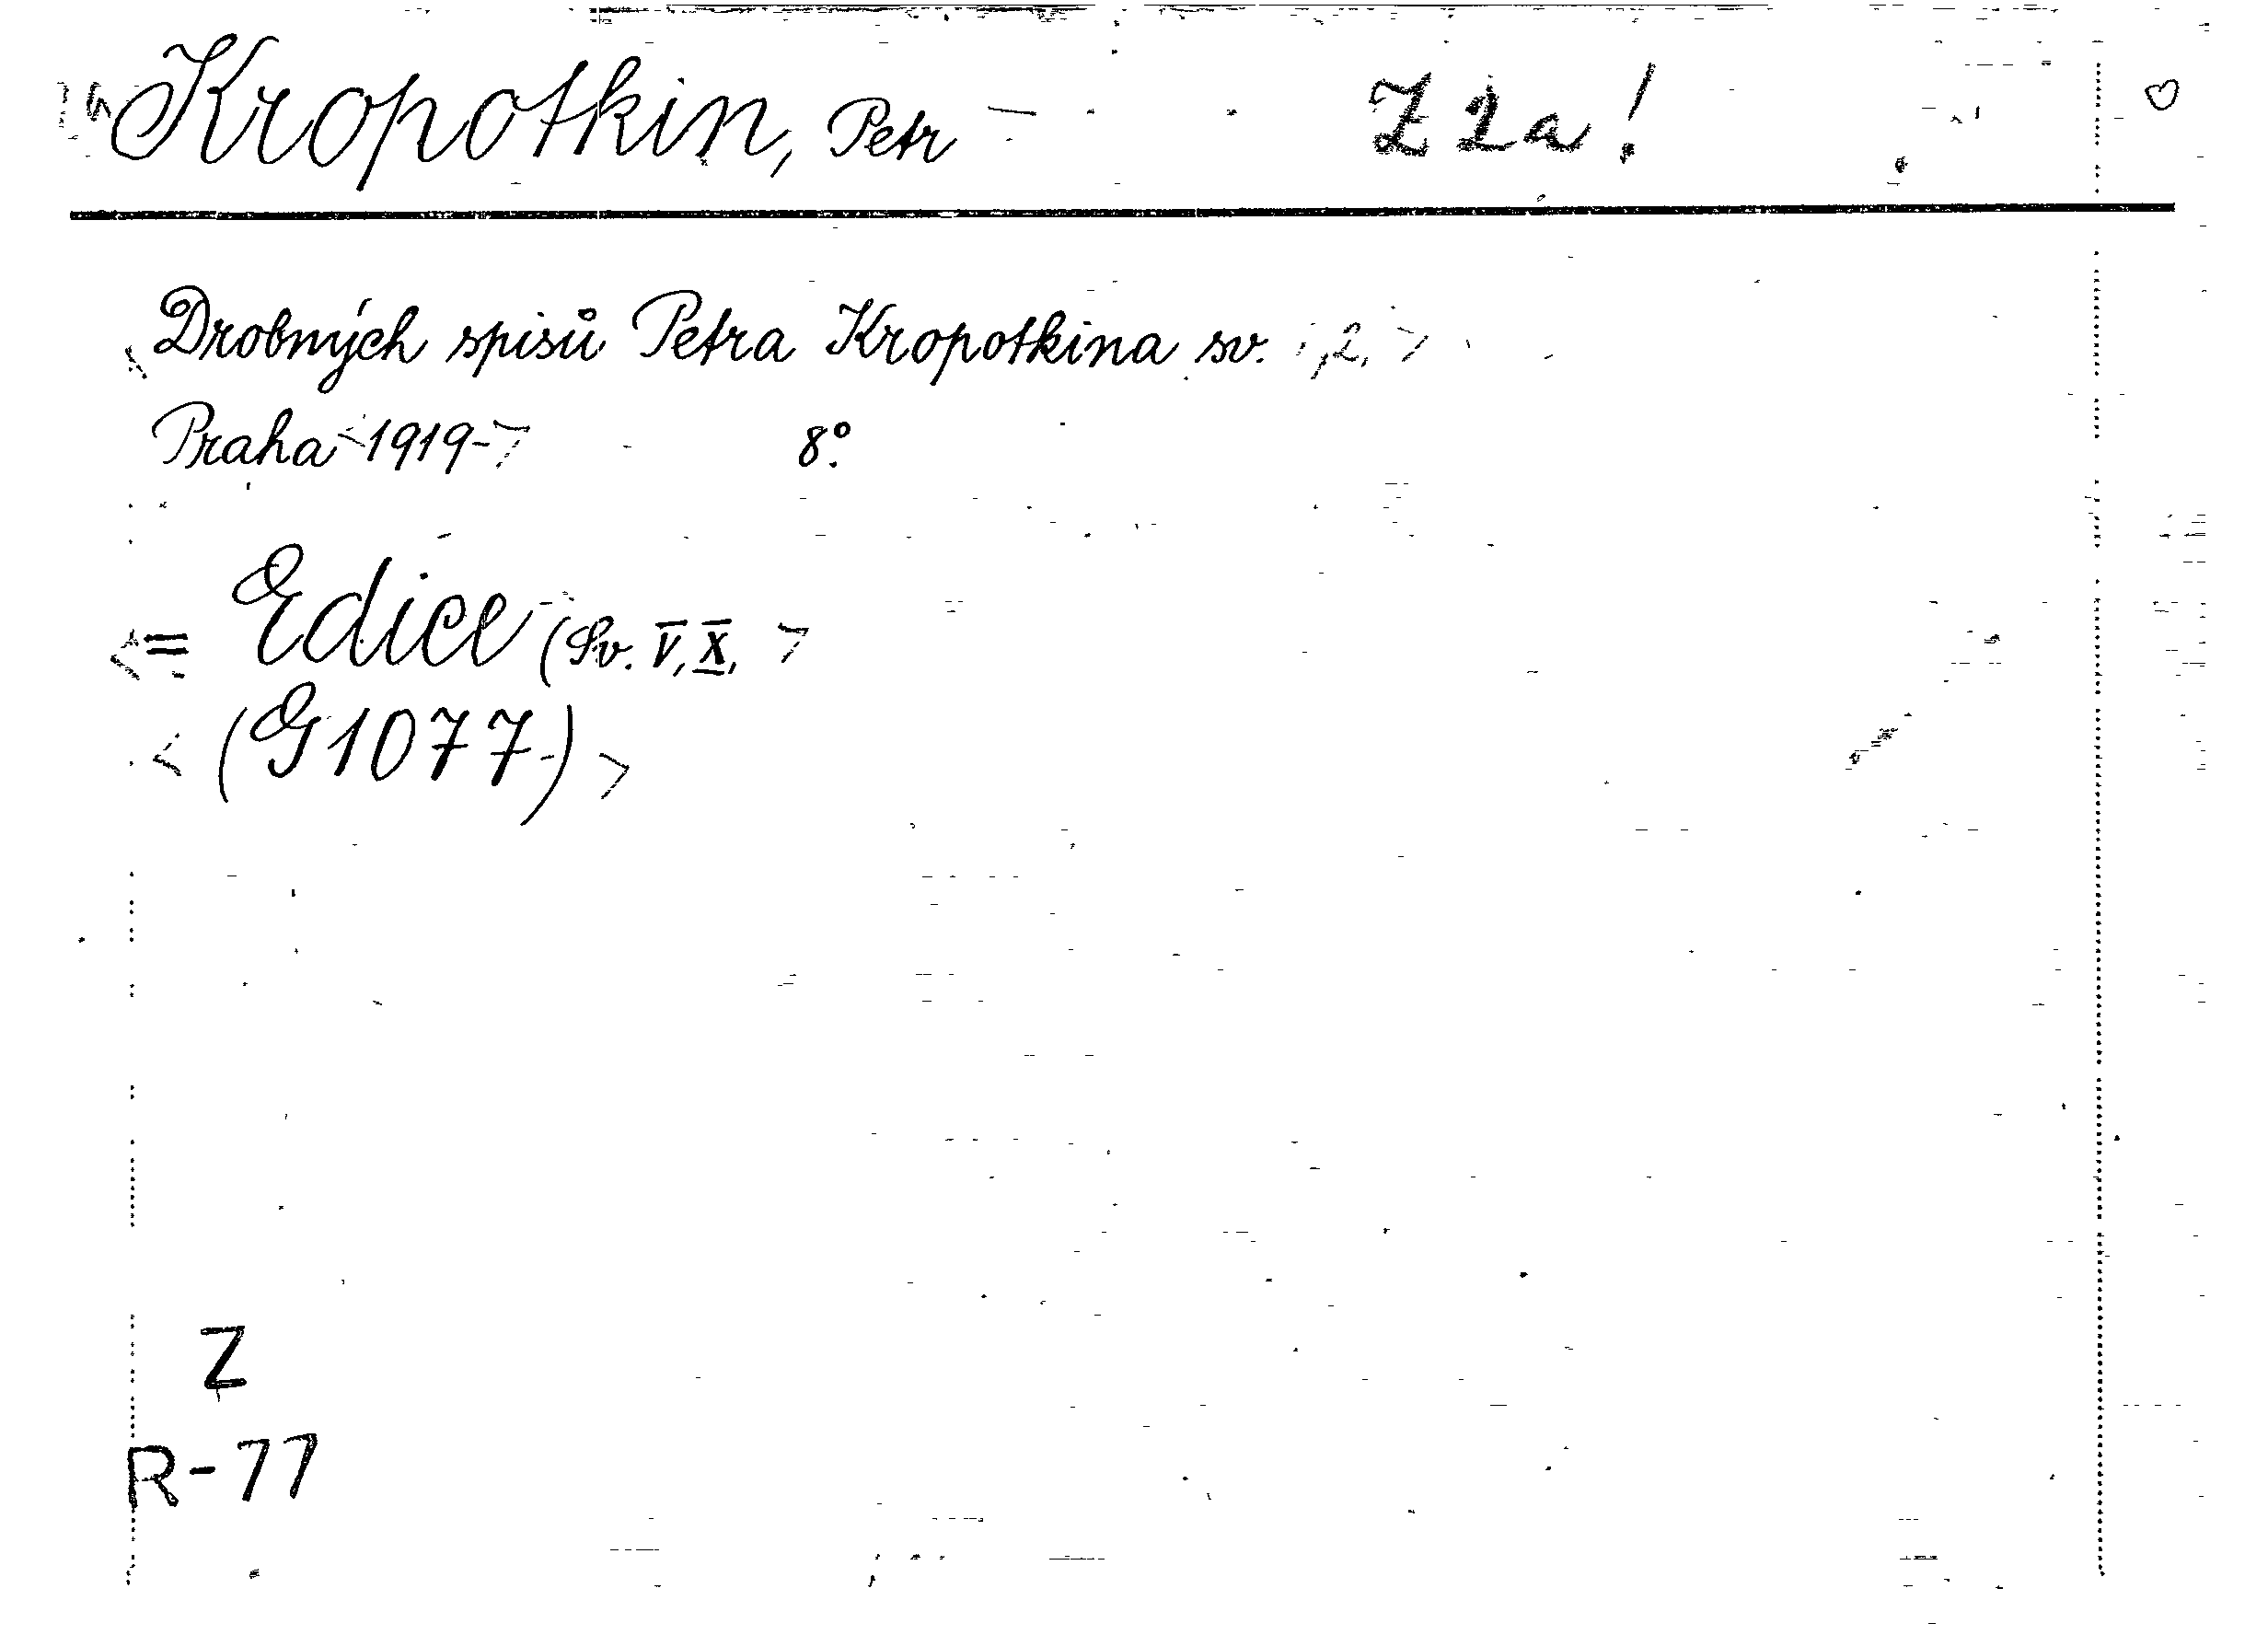 Kropotkin, Petr Z 2a!
Drobných spisů Petra Kropotkina sv. 1, 2, >
Praha <1919-> 8°.
<= Edice (Sv. V, X, >
< (G 1077) >
Z
R-77